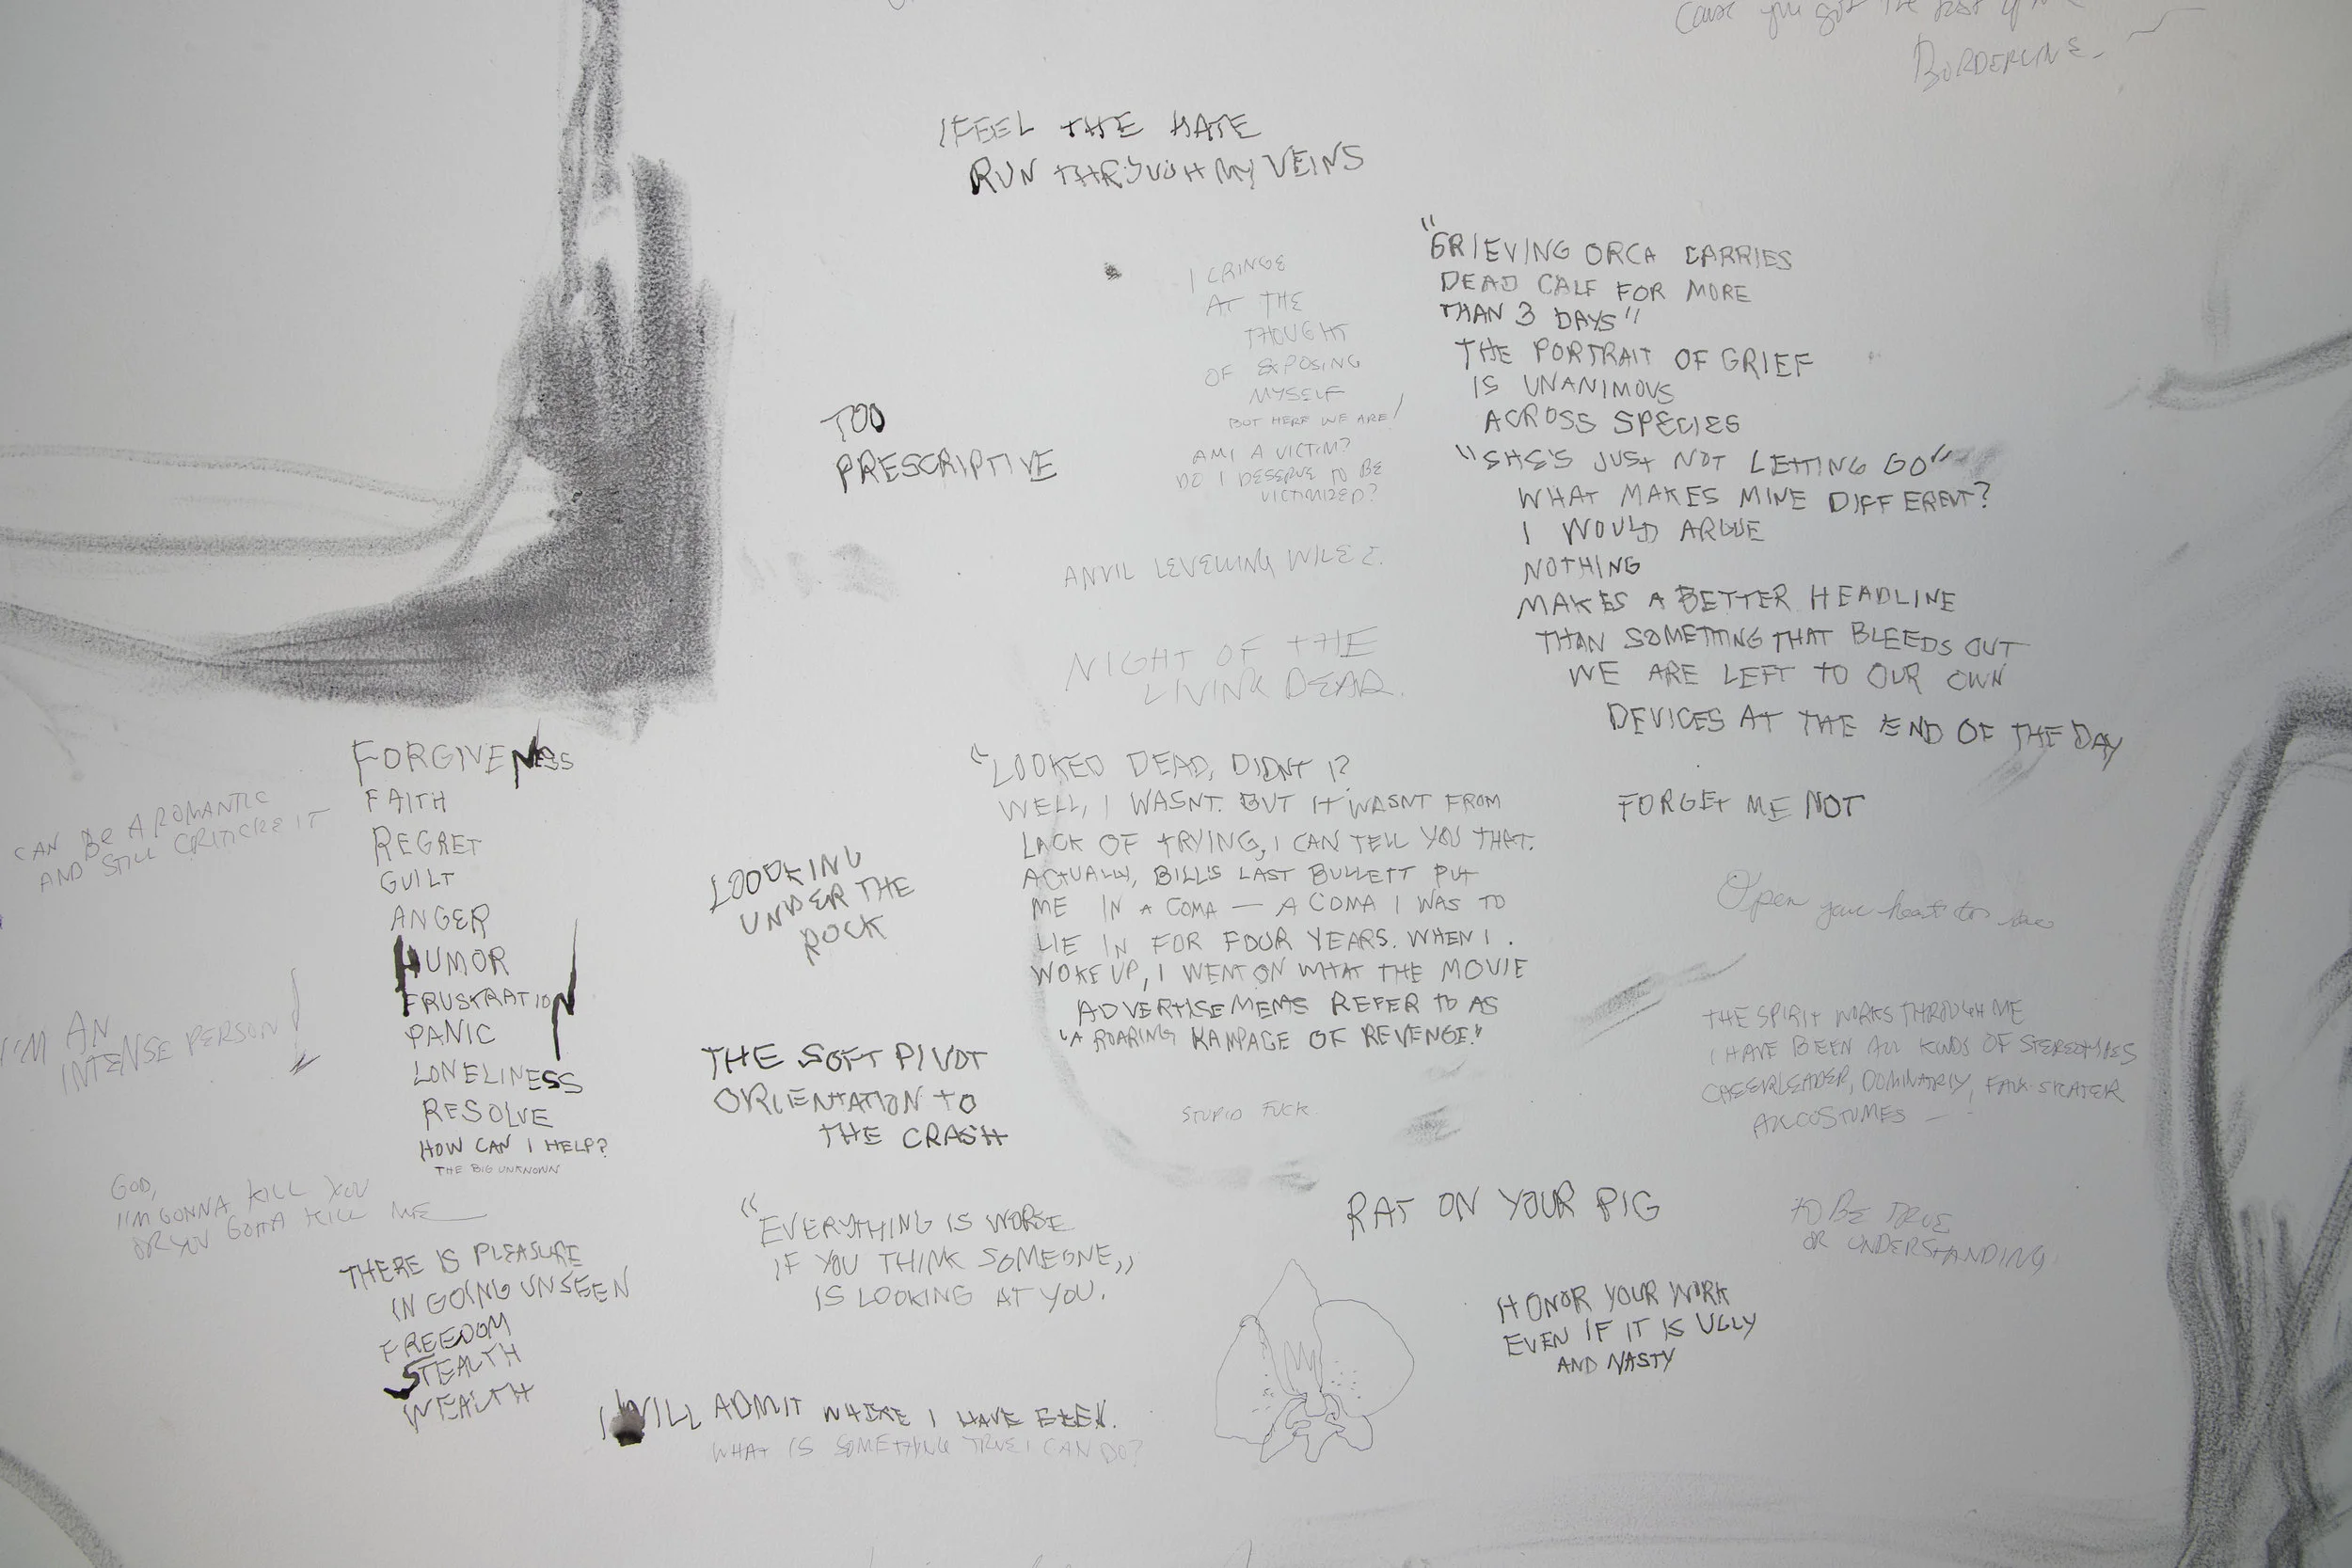 Cause you got the best of me
BORDERLINE
I FEEL THE HATE
RUN THROUGH MY VEINS
I CRINGE
AT THE
THOUGHT
OF EXPOSING
MYSELF
BUT HERE WE ARE!
AM I A VICTIM?
DO I DESERVE TO BE
VICTIMIZED?
"GRIEVING ORCA CARRIES
DEAD CALF FOR MORE
THAN 3 DAYS"
THE PORTRAIT OF GRIEF
IS UNANIMOUS
ACROSS SPECIES
"SHE'S JUST NOT LETTING GO"
WHAT MAKES MINE DIFFERENT?
I WOULD ARGUE
NOTHING
MAKES A BETTER HEADLINE
THAN SOMETHING THAT BLEEDS OUT
WE ARE LEFT TO OUR OWN
DEVICES AT THE END OF THE DAY
TOO
PRESCRIPTIVE
ANVIL LEVELLING
NIGHT OF THE
LIVING DEAD.
FORGIVENESS
FAITH
REGRET
GUILT
ANGER
HUMOR
FRUSKRATION
PANIC
LONELINESS
RESOLVE
HOW CAN I HELP?
THE BIG UNKNOWN
CAN BE A ROMANTIC
AND STILL IT
I'M AN
INTENSE PERSON!
GOD,
I'M GONNA KILL YOU
OR YOU GOTTA KILL ME
THERE IS PLEASURE
IN GOING UNSEEN
FREEDOM
STEALTH
WEALTH
LOOOKING
UNDER THE
ROCK
THE SOFT PIVOT
ORIENTATION TO
THE CRASH
"EVERYTHING IS WORSE
IF YOU THINK SOMEONE"
IS LOOKING AT YOU.
I WILL ADMIT WHERE I HAVE BEEN.
WHAT IS SOMETHING TRUE I CAN DO?
"LOOKED DEAD, DIDNT I?
WELL, I WASNT. BUT IT WASNT FROM
LACK OF TRYING, I CAN TELL YOU THAT.
ACTUALLY, BILL'S LAST BULLETT PUT
ME IN A COMA — A COMA I WAS TO
LIE IN FOR FOUR YEARS. WHEN I
WOKE UP, I WENT ON WHAT THE MOVIE
ADVERTISEMENTS REFER TO AS
"A ROARING RAMPAGE OF REVENGE."
STUPID FUCK.
FORGET ME NOT
Open your heart to me
THE SPIRIT WORKS THROUGH ME
I HAVE BEEN ALL KINDS OF STEREOTYPES
CHEERLEADER,
COSTUMES —
RAT ON YOUR PIG
TO BE TRUE
OR UNDERSTANDING
HONOR YOUR WORK
EVEN IF IT IS UGLY
AND NASTY